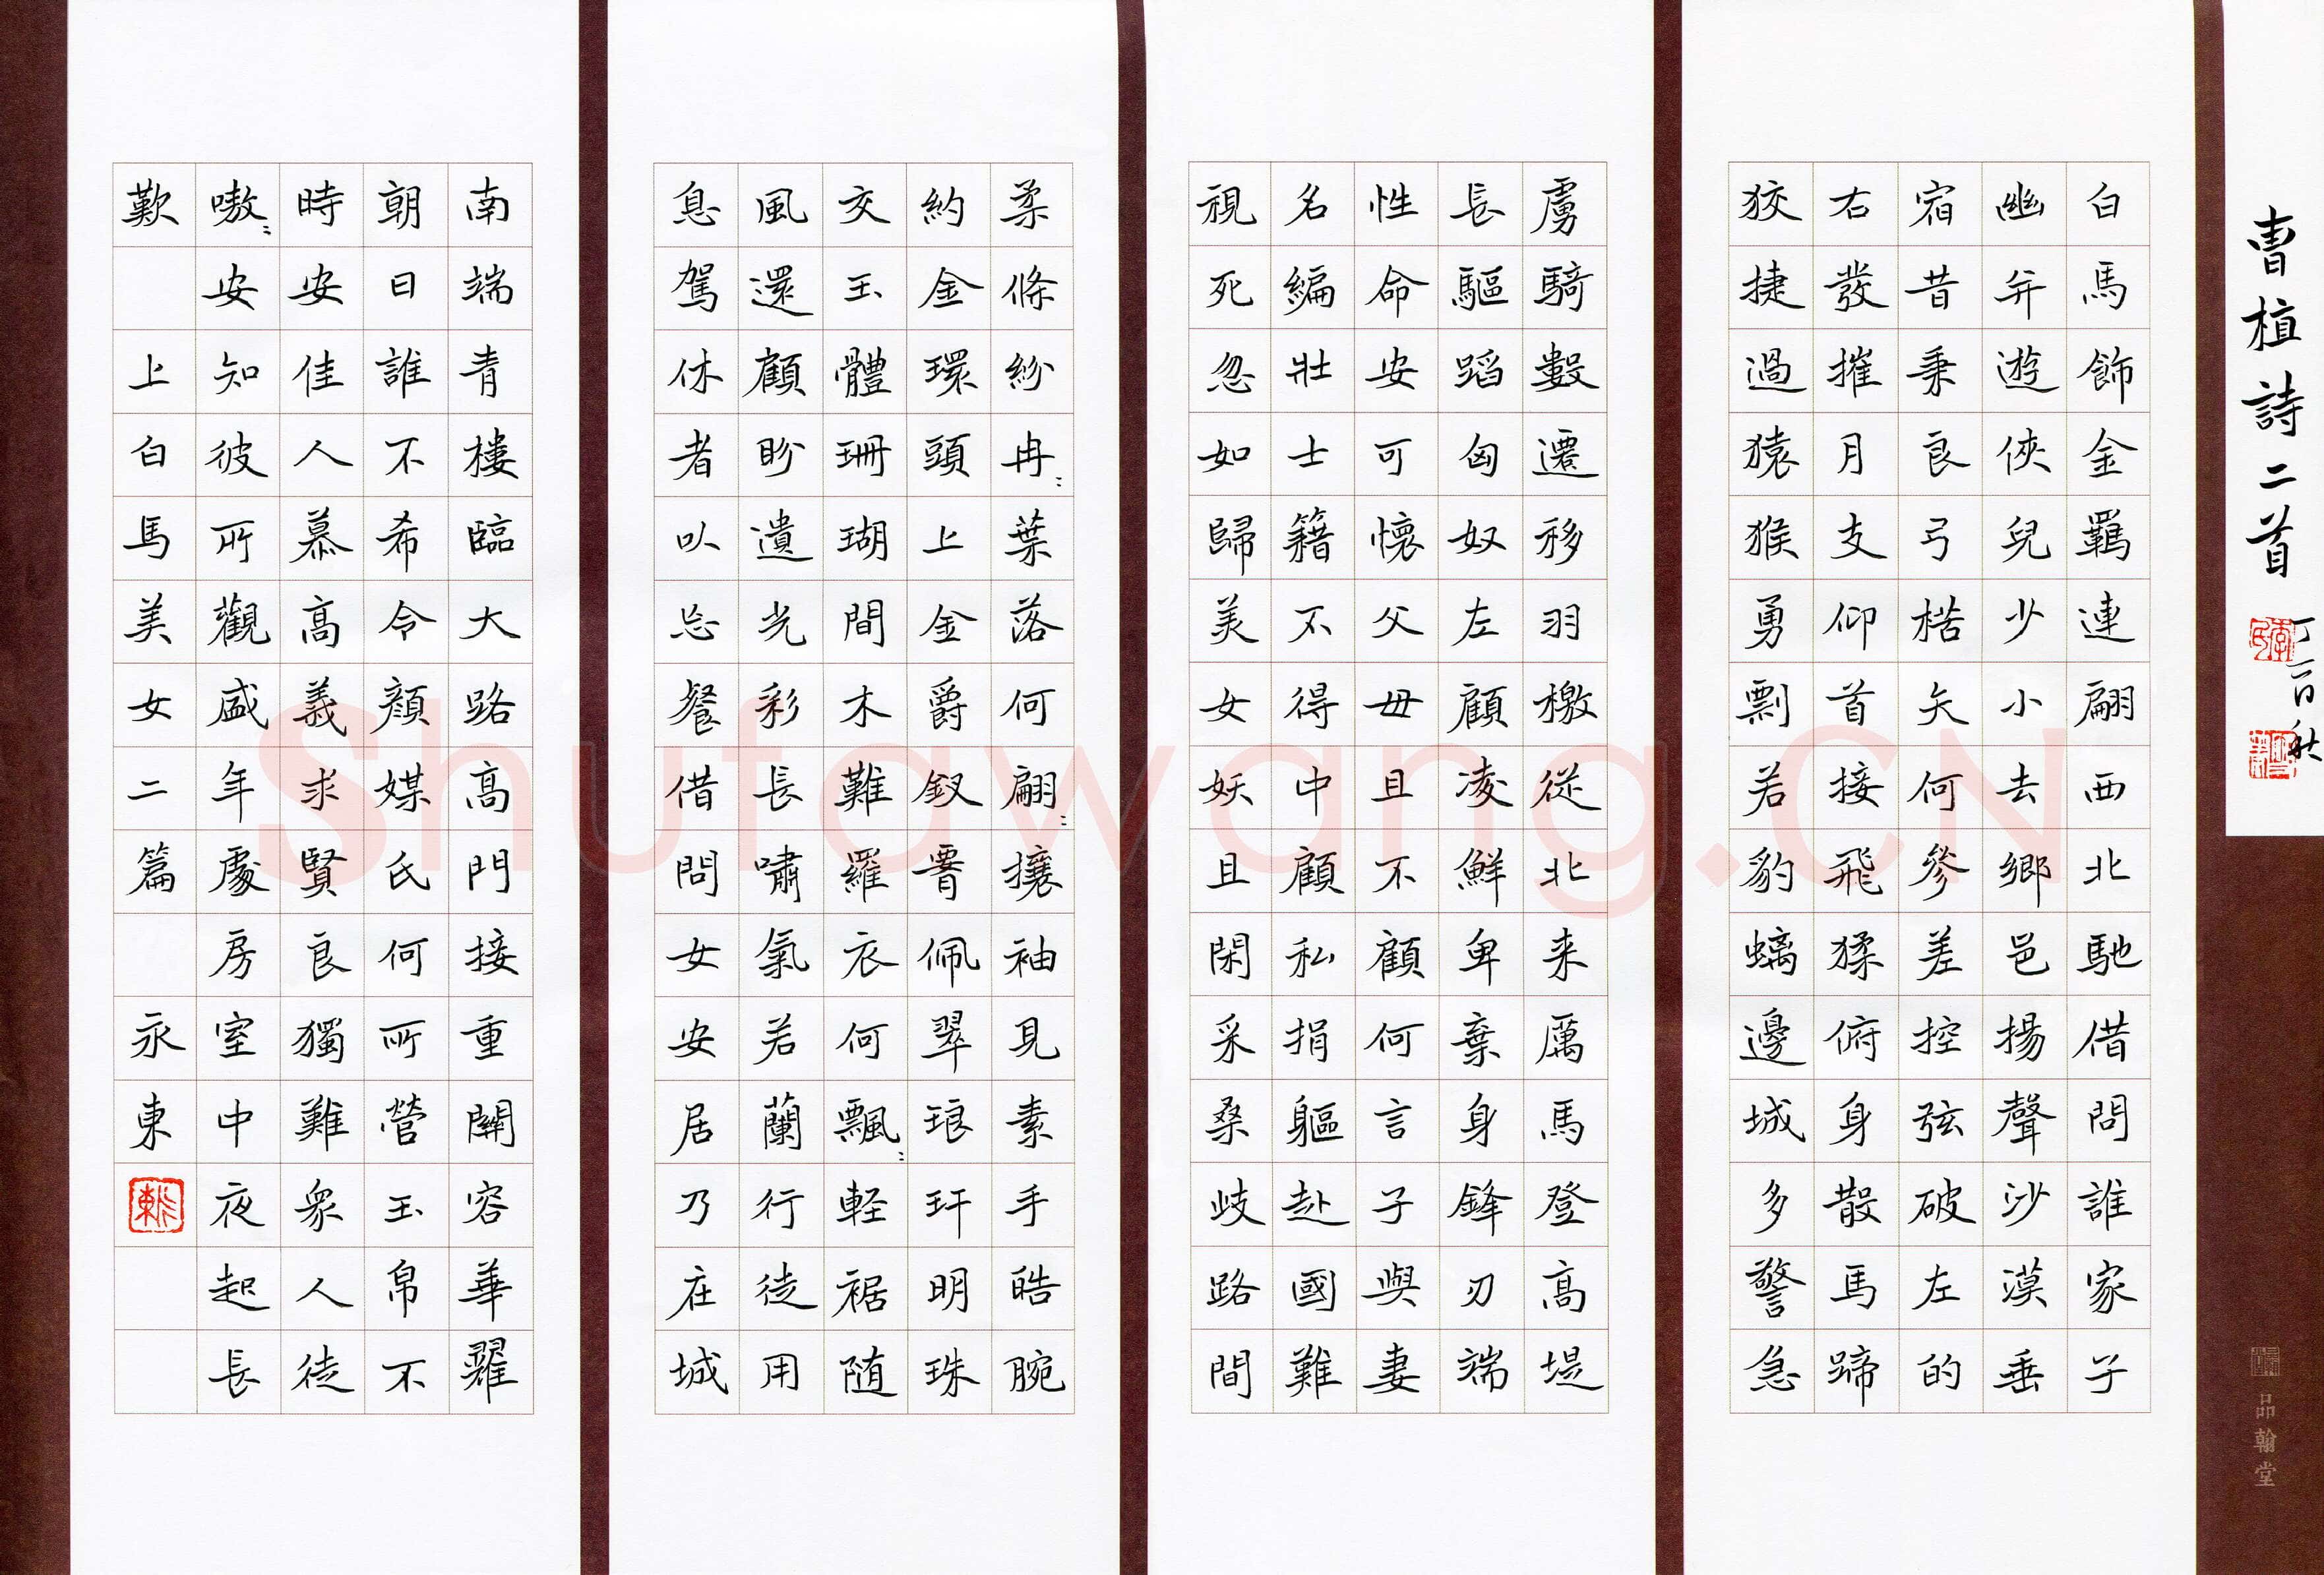 曹植詩二首
丁酉秋
白馬飾金羈連翩西北馳借問誰家子
幽并遊俠兒少小去鄉邑揚聲沙漠垂
宿昔秉良弓楛矢何參差控弦破左的
右發摧月支仰首接飛猱俯身散馬蹄
狡捷過猿猴勇剽若豹螭邊城多警急
虜騎數遷移羽檄從北来厲馬登高堤
長驅蹈匈奴左顧凌鮮卑棄身鋒刃端
性命安可懷父母且不顧何言子與妻
名編壯士籍不得中顧私捐軀赴國難
視死忽如歸美女妖且閑采桑歧路間
柔條紛冉〻葉落何翩〻攘袖見素手皓腕
約金環頭上金爵釵要佩翠琅玕明珠
交玉體珊瑚間木難羅衣何飄〻軽裾随
風還顧眄遺光彩長嘯氣若蘭行徒用
息駕休者以忘餐借問女安居乃在城
南端青樓臨大路高門接重關容華耀
朝日誰不希令顏媒氏何所營玉帛不
時安佳人慕高義求賢良獨難眾人徒
嗷〻安知彼所觀盛年處房室中夜起長
歎 上白馬美女二篇 永東
品翰堂
Shufawang.CN